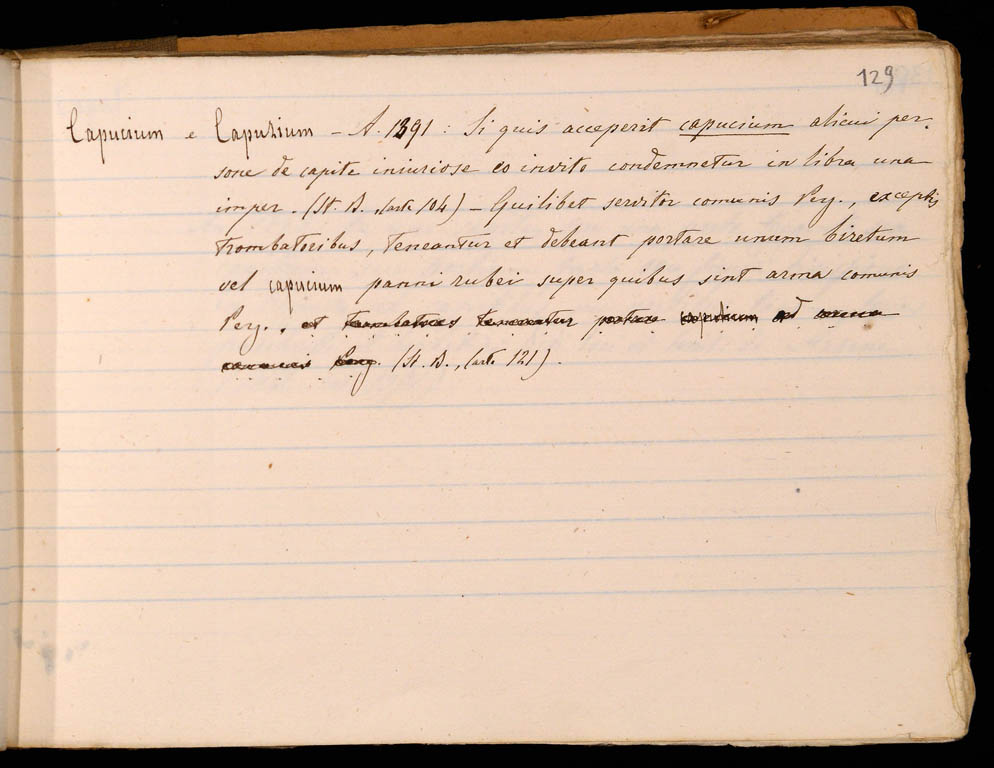 129
Capucium e Capuzium - A. 1391 : Si quis acceperit capucium alicui per-
sone de capite iniuriose eo invito condemnetur in libra una
imper. (St. B., carte 104) - Quilibet servitor comunis Rey., exceptis
trombatoribus, teneantur et debeant portare unum biretum
vel capucium panni rubei super quibus sint arma comunis
Rey., et trombatores teneantur portare capucium ad arma
comunis Rey. (St. B., carte 121).